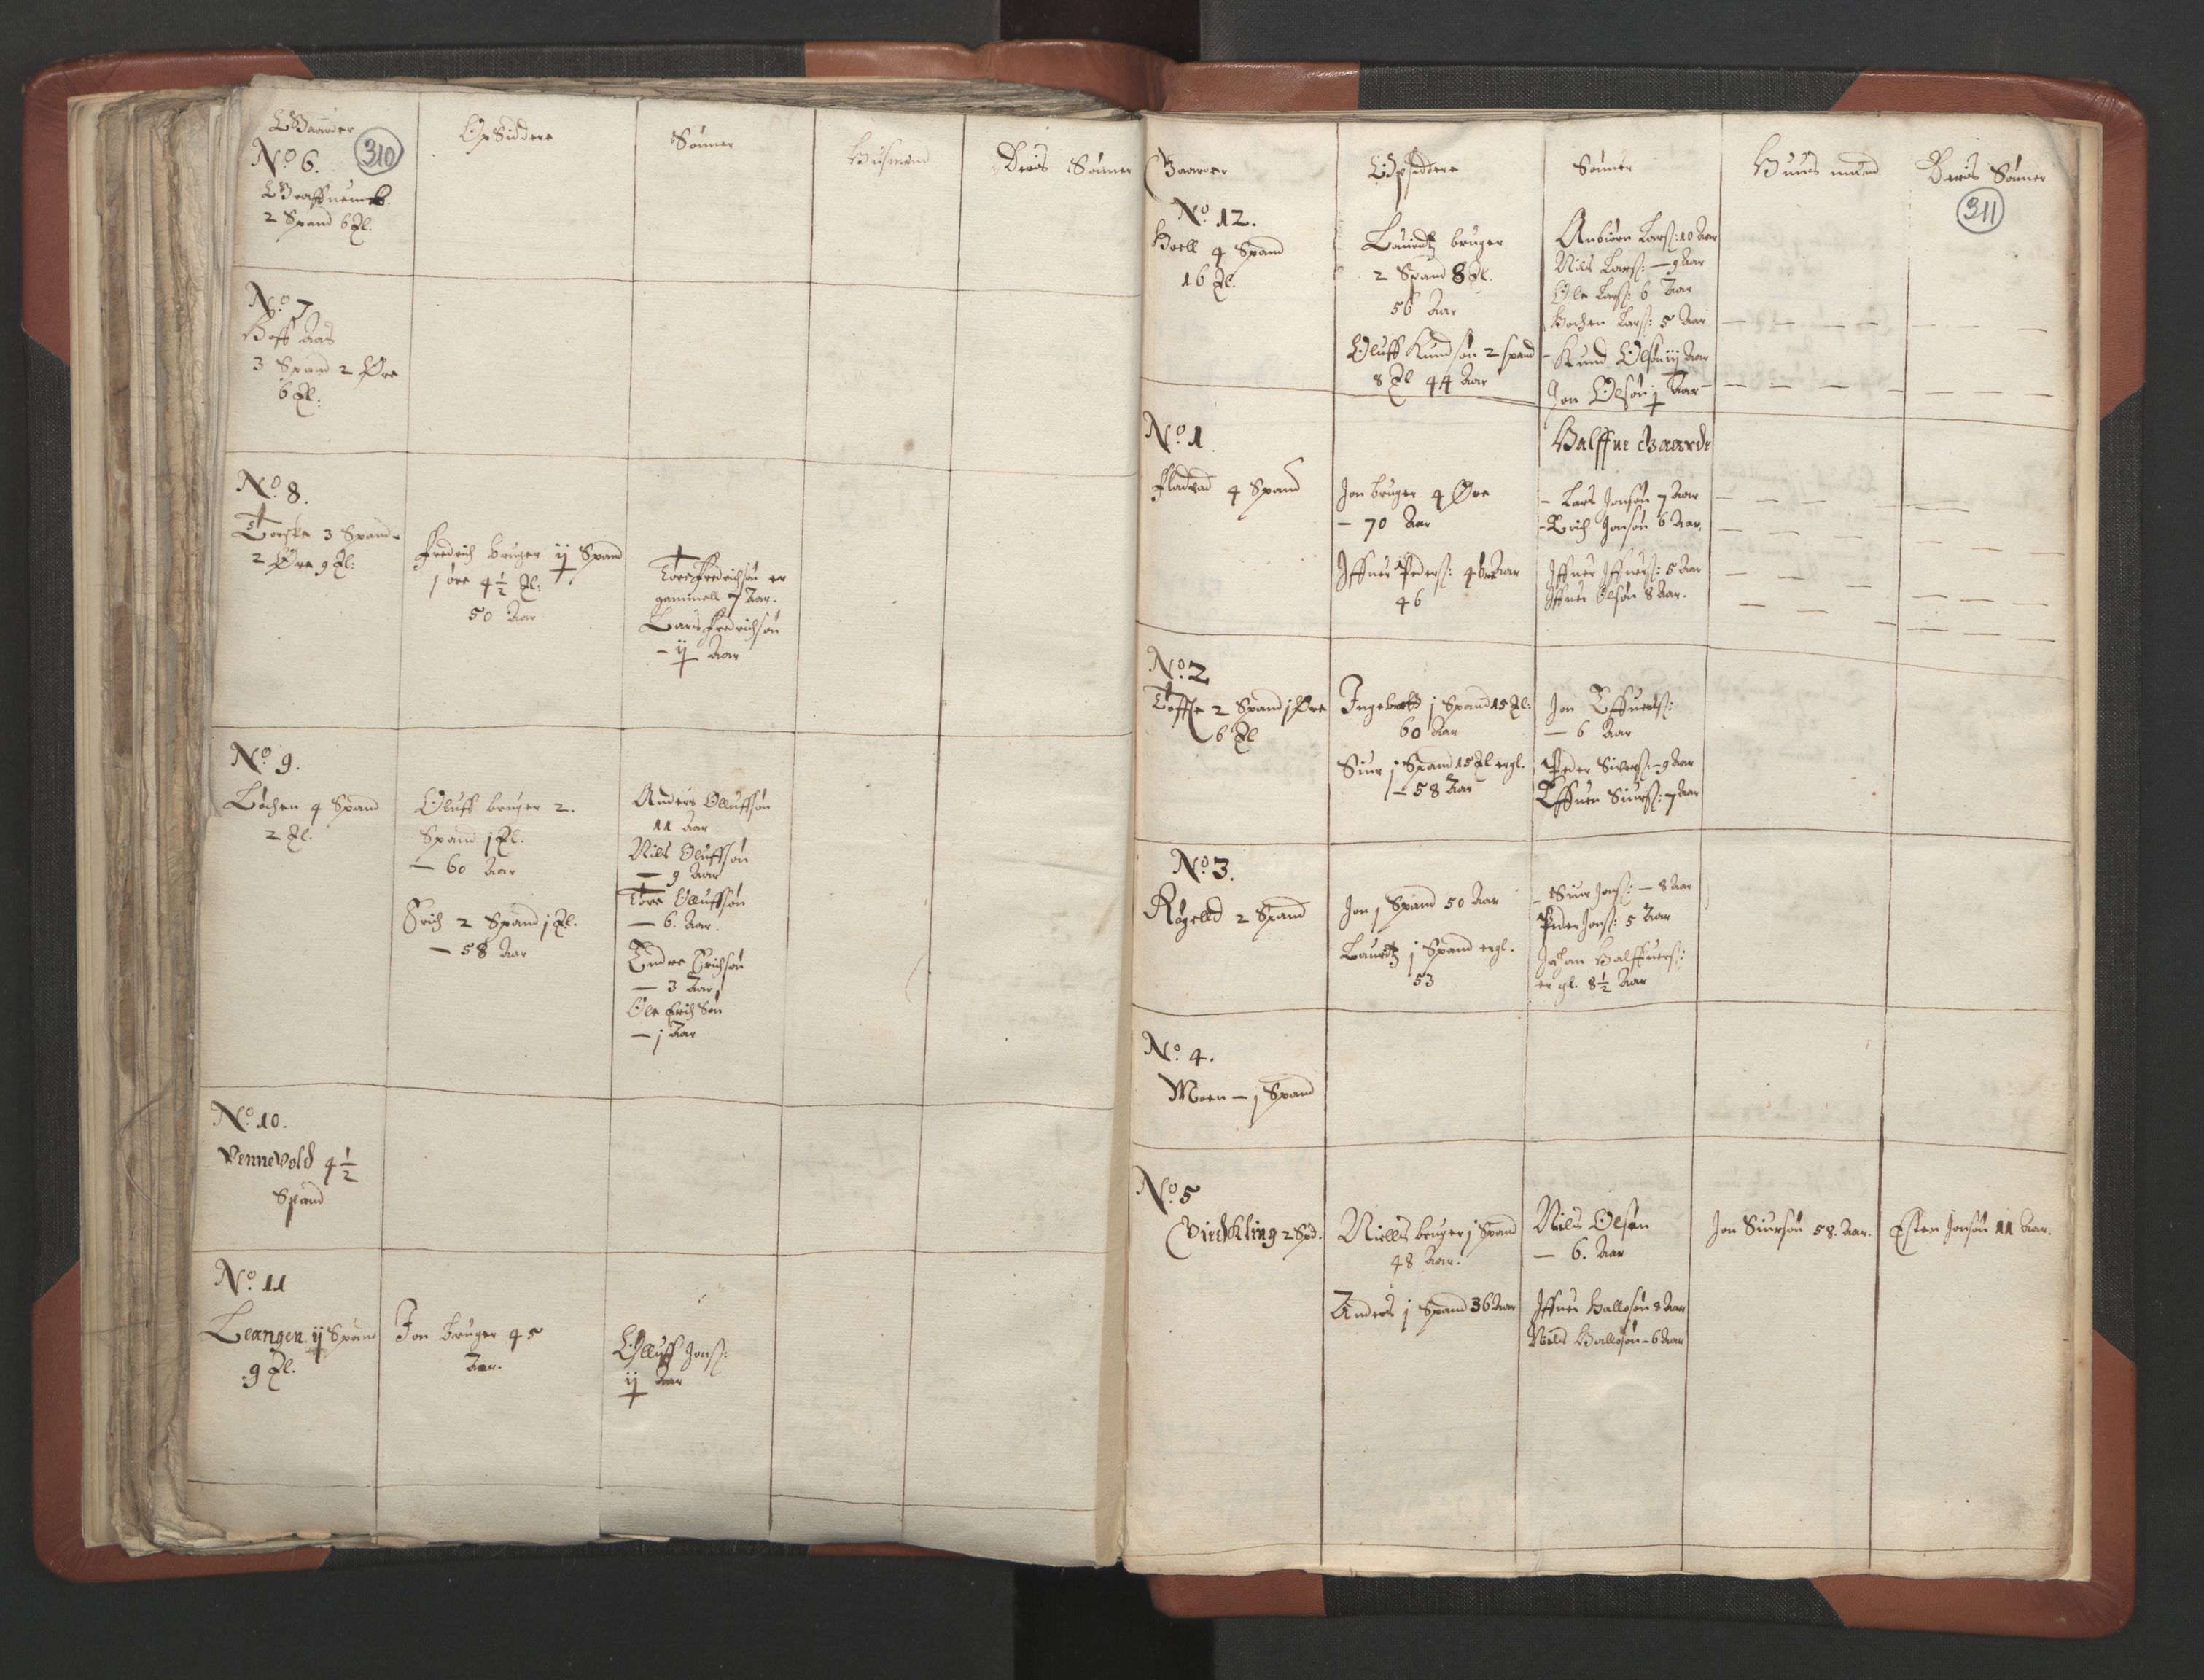 Gaarder
Opsiddere
Sønner
Husmend
Deris Sønner
310
No 6.
2 Spand 6 Ml.
No 7
Hoff Aas
3 Spand 2 Øre
6 Ml:
No 8.
Torske 3 Spand
2 Øre 9 Ml:
Fredrich bruger ij Spand
1 øre 4 1/2 Ml:
50 Aar
Tore Fredrichsøn er
gammell 7 Aar.
Lars Fredrichsøn
- ij Aar
No 9.
Løchen 4 Spand
2 Ml.
Oluff bruger 2.
Spand j Ml.
- 60 Aar
Erich 2 Spand j Ml.
- 58 Aar
Anders Olluffsøn
11 Aar
Nils Oluffsøn
- 9 Aar
Tore Olluffsøn
- 6. Aar.
Endre Erichsøn
- 3 Aar
Ole Erich Søn
- j Aar
No 10.
Vennevold 4 1/2
Spand
No 11
Leangen ij Spand
9 Ml.
Jon bruger 45
Aar.
Olluff Jonss:
ij Aar
Gaarder
Opsiddere
Sønner
Huus mænd
Deris Sønner
311
No 12.
Hoell 4 Spand
16 Ml.
Lauridtz bruger
2 Spand 8 Ml.
56 Aar
Oluff Knudsøn 2 spand
8 Ml 44 Aar
Anbiørn Larss: 10 Aar
Nils Larss: - 9 Aar
Ole Larss: 6 Aar
Larss: 5 Aar
Knud Olsøn ij Aar
Jon Olsøn j Aar
Halffue Gaarde
No 1
Fladvad 4 Spand
Jon bruger 4 Øre
- 70 Aar
Iffuer Pederss: 4 Aar
46
- Lars Jonsøn 7 Aar
- Erich Jonsøn 6 Aar.
Iffuer Iffuerss: 5 Aar
Iffuer Olsøn 8 Aar.
No 2
Toffte 2 Spand j Øre
6 Ml
j Spand 15 Ml:
60 Aar
Siur j Spand 15 Ml er gl.
- 58 Aar
Jon
- 6 Aar
Peder Siverss: - 9 Aar
Siurss: 7 Aar
No 3.
Røgelld 2 Spand
Jon j Spand 50 Aar
Lauridtz j Spand er gl.
53
- Siur Jonss: - 8 Aar
Peder Jonss: 5 Aar
Johan Halffuerss:
er gl. 8 1/2 Aar
No 4.
Moen - j Spand
No 5
2 Spd.
Niells bruger j Spand
48 Aar.
Anders j Spand 36 Aar
Nils Olsøn
- 6. Aar
Iffuer Hallosøn 8 Aar
Niels Hallosøn - 6 Aar
Jon Siursøn 58. Aar.
Esten Jonsøn 11 Aar.